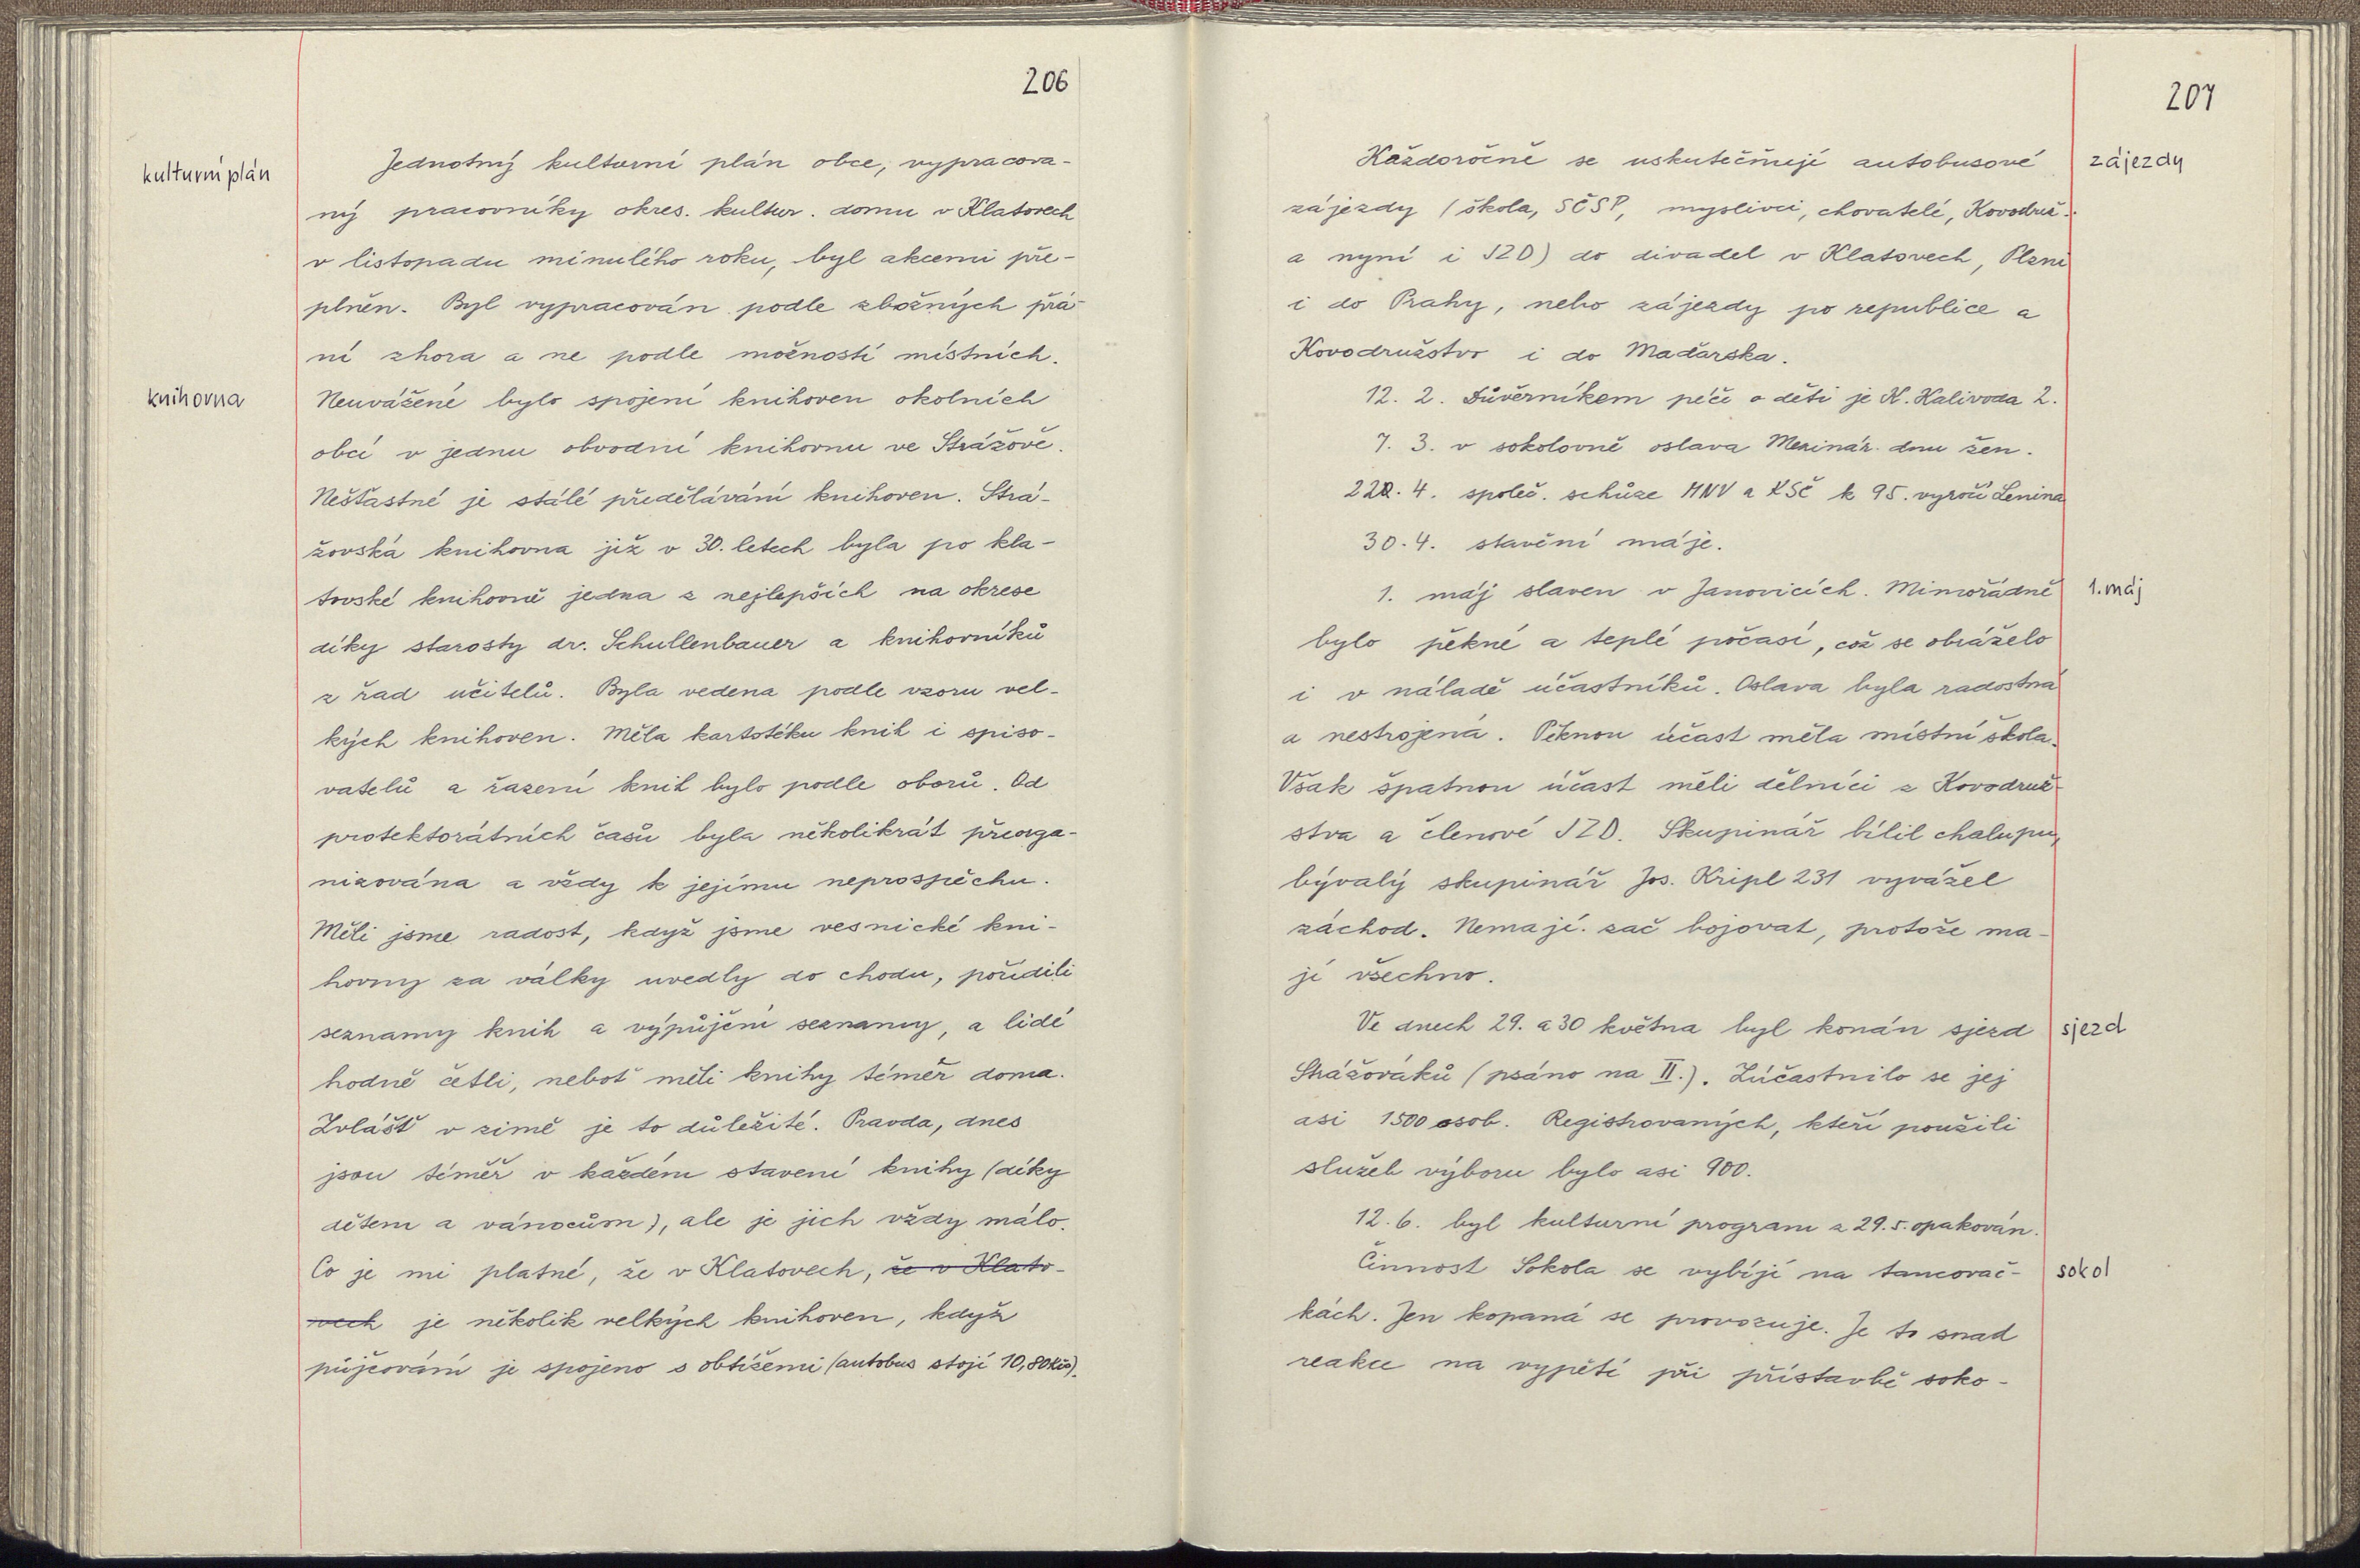 206
kulturní plán
Jednotný kulturní plán obce, vypracova-
ný pracovníky okres. kultur. domu v Klatovech
v listopadu minulého roku, byl akcemi pře-
plněn. Byl vypracován podle zbožných přá-
ní shora a ne podle možností místních.
knihovna
Neuvážené bylo spojení knihoven okolních
obcí v jednu obvodní knihovnu ve Strážově.
Nešťastné je stálé předělávání knihoven. Strá-
žovská knihovna již v 30. letech byla po kla-
tovské knihovně jedna z nejlepších na okrese
díky starosty dr. Schullenbauer a knihovníků
z řad učitelů. Byla vedena podle vzoru vel-
kých knihoven. Měla kartotéku knih i spiso-
vatelů a řazení knih bylo podle oborů. Od
protektorátních časů byla několikrát přeorga-
nizována a vždy k jejímu neprospěchu.
Měli jsme radost, když jsme vesnické kni-
hovny za války uvedly do chodu, pořídili
seznamy knih a výpůjční seznamy, a lidé
hodně četli, neboť měli knihy téměř doma.
Zvlášť v zimě je to důležité. Pravda, dnes
jsou téměř v každém stavení knihy (díky
dětem a vánocům), ale je jich vždy málo.
Co je mi platné, že v Klatovech, že v Klato-
vech je několik velkých knihoven, když
půjčování je spojeno s obtížemi (autobus stojí 10,80 Kčs).
207
Každoročně se uskutečňují autobusové
zájezdy
zájezdy (škola, SČSP, myslivci, chovatelé, Kovodruž.
a nyní i JZD) do divadel v Klatovech, Plzni
i do Prahy, nebo zájezdy po republice a
Kovodružstvo i do Maďarska.
12. 2. Důvěrníkem péče o děti je K. Kalivoda 2.
7. 3. v sokolovně oslava Mezinár. dnu žen.
22. 4. společ. schůze MNV a KSČ k 95. vyročí Lenina
30. 4. stavění máje.
1. máj slaven v Janovicích. Mimořádně
1. máj
bylo pěkné a teplé počasí, což se obráželo
i v náladě účastníků. Oslava byla radostná
a nestrojená. Pěknou účast měla místní škola.
Však špatnou účast měli dělníci z Kovodruž-
stva a členové JZD. Skupinář bílil chalupu,
bývalý skupinář Jos. Kripl 231 vyvážel
záchod. Nemají zač bojovat, protože ma-
jí všechno.
Ve dnech 29. a 30 května byl konán sjezd
sjezd
Strážováků (psáno na II.). Zúčastnilo se jej
asi 1500 osob. Registrovaných, kteří použili
služeb výboru bylo asi 900.
12. 6. byl kulturní program z 29. 5. opakován.
Činnost Sokola se vybíjí na tancovač-
sokol
kách. Jen kopaná se provozuje. Je to snad
reakce na vypětí při přístavbě soko-